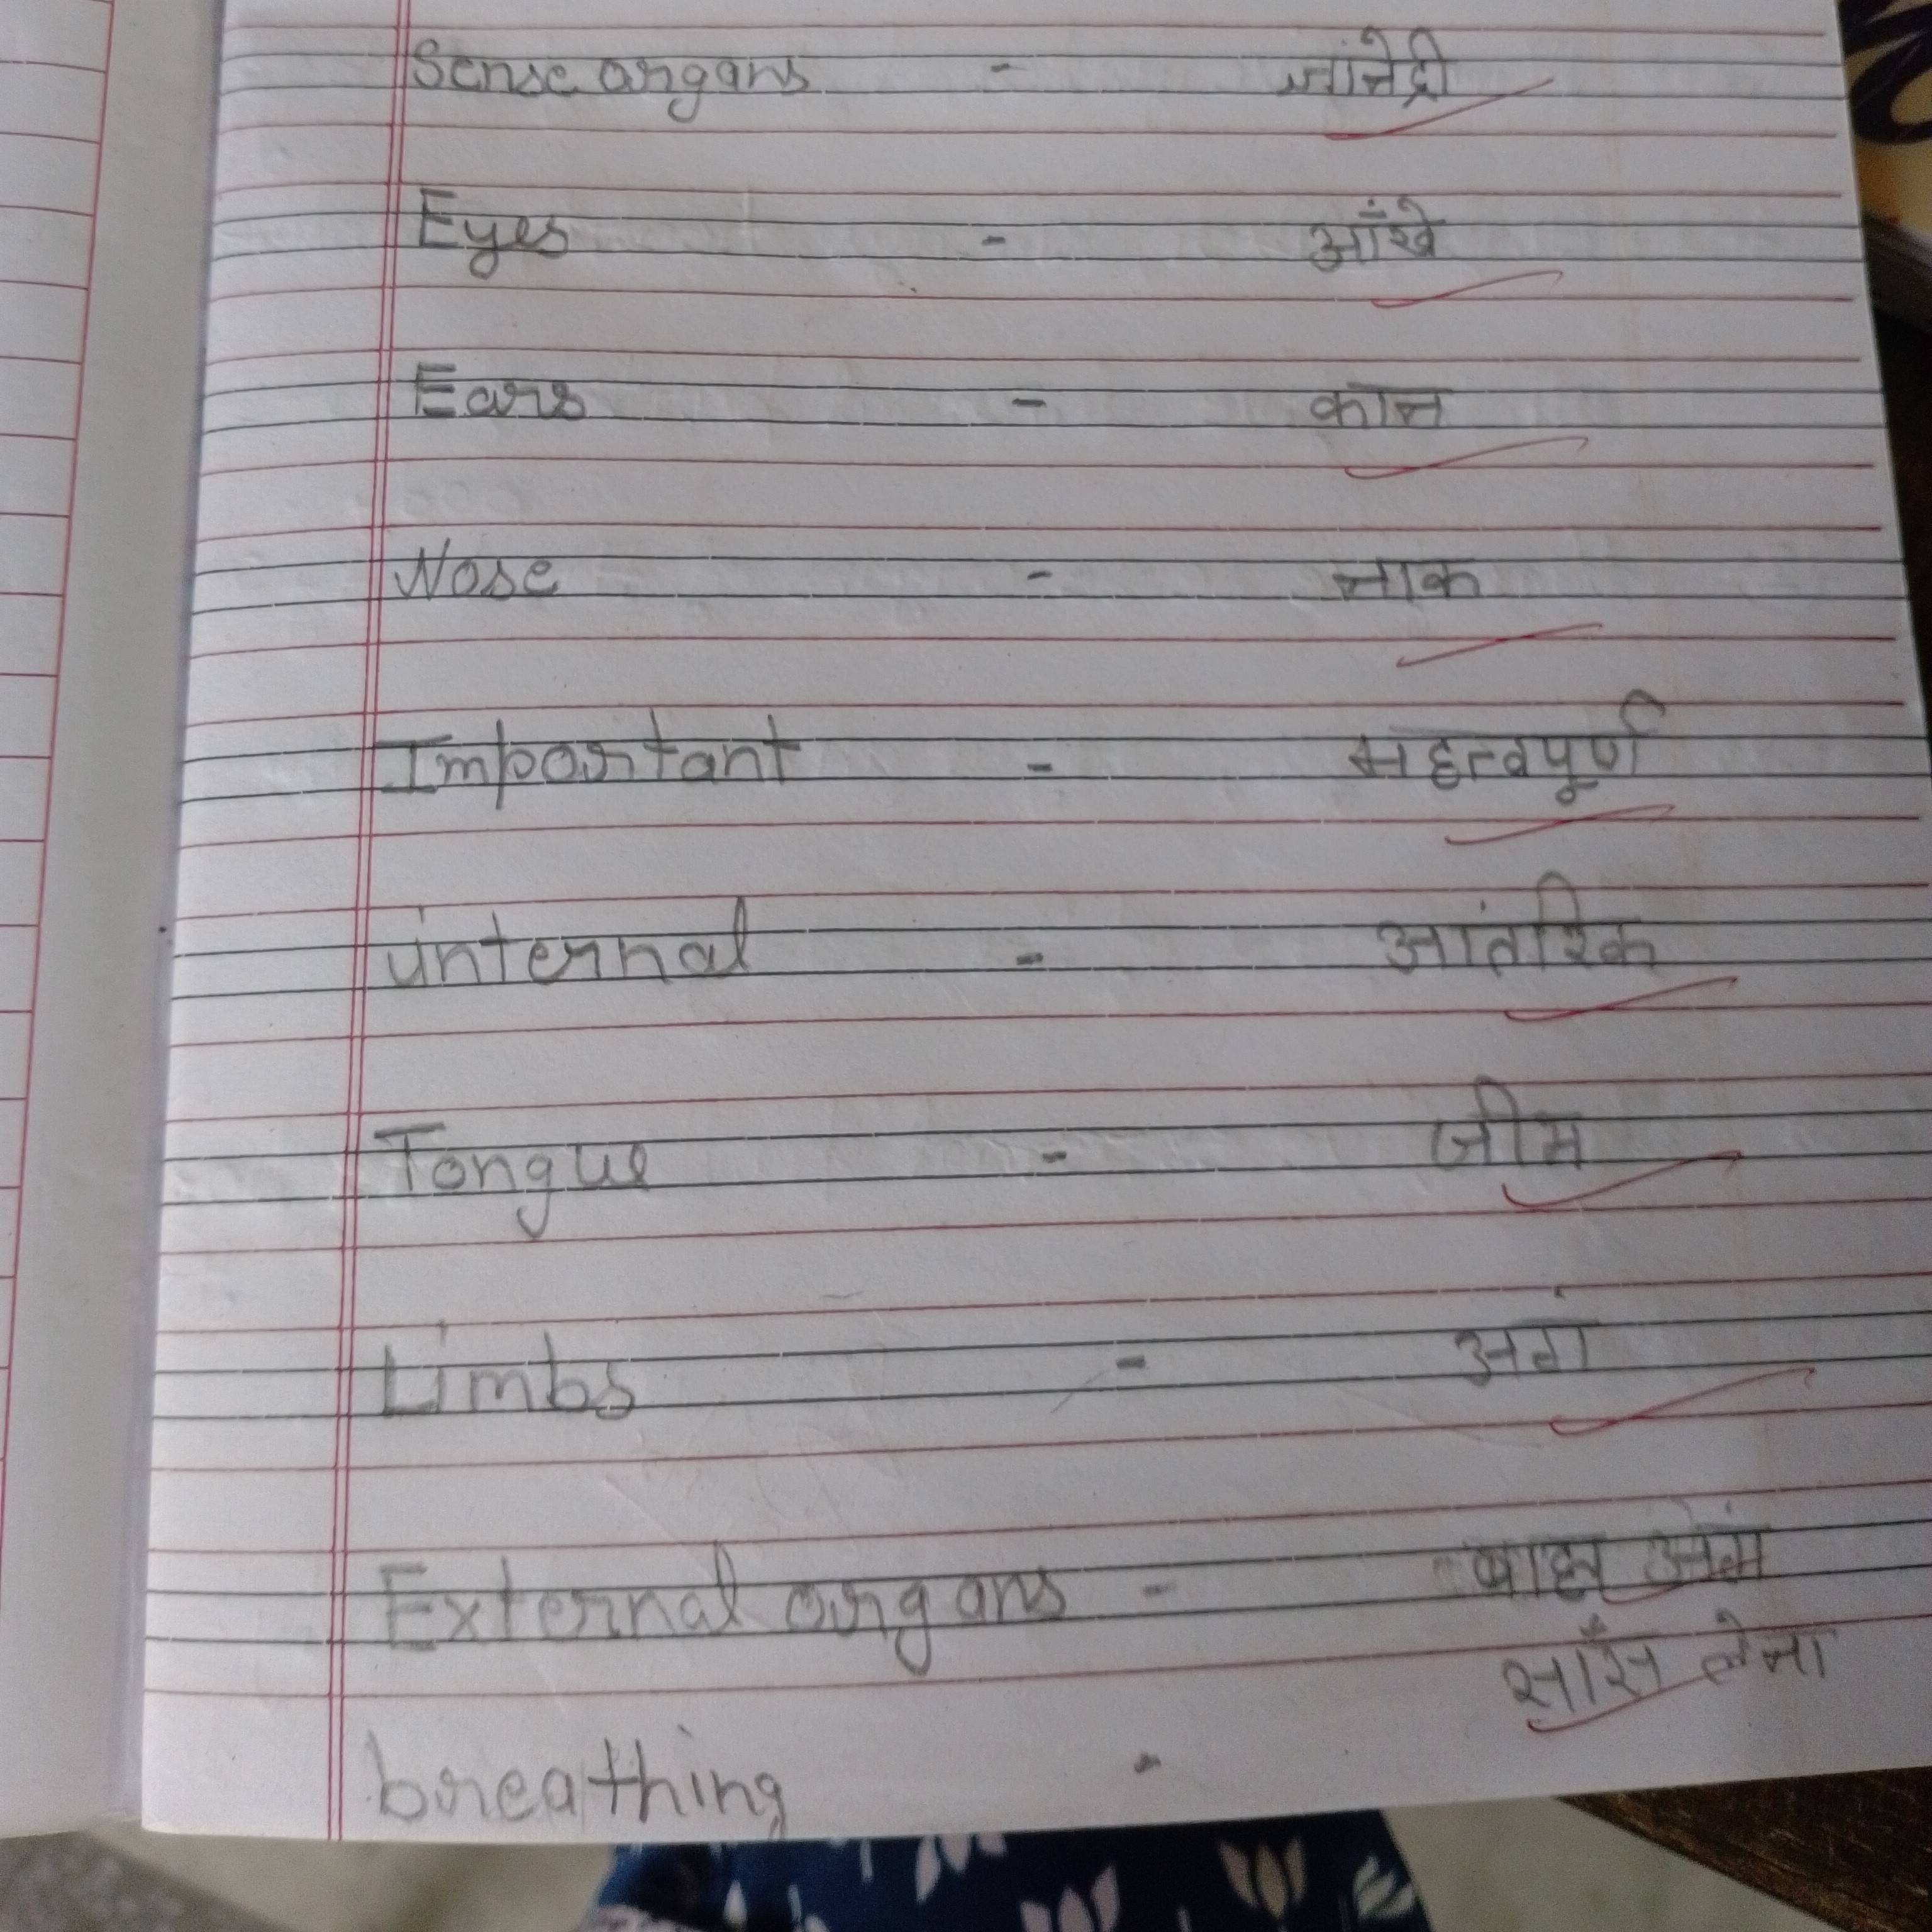 Sense organs - ज्ञानेंद्री
Eyes - आँखें
Ears - कान
Nose - नाक
Important - महत्वपूर्ण
internal - आंतरिक
Tongue - जीभ
Limbs - अंग
External organs - बाह्य अंग
साँस लेना
breathing -